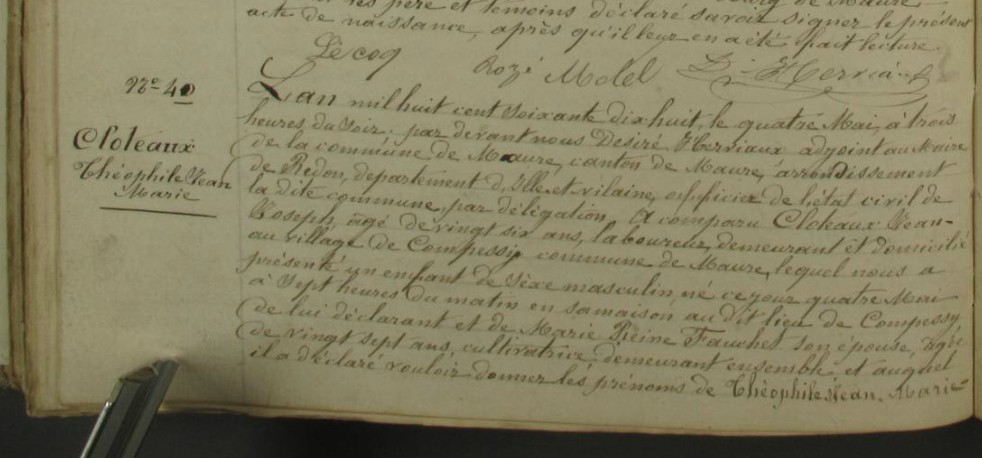 les père et témoins déclaré savoir signer le présent
acte de naissance, après qu'il leur en a été fait lecture.
Lecoq Rozé Molel D. Herviaux
Nº 40
Cloteaux
Théophile Jean
Marie
L'an mil huit cent soixante dix huit, le quatre Mai, à trois
heures du soir, par devant nous Désiré Herviaux adjoint au Maire
de la commune de Maure, canton de Maure, arrondissement
de Redon, departement d'Ille-et-vilaine, officier de l'état civil de
la dite commune, par délégation, A comparu Cloteaux Jean-
Joseph, agé de vingt six ans, laboureur, demeurant et domicilié
au village de Compessy commune de Maure, lequel nous a
présenté un enfant de sexe masculin, né ce jour quatre Mai
à sept heures du matin en sa maison au dit lieu de Compessy
de lui déclarant et de Marie Reine Fauchet son épouse, agée
de vingt sept ans, cultivatrice, demeurant ensemble et auquel
il a déclaré vouloir donner les prénoms de Théophile Jean Marie